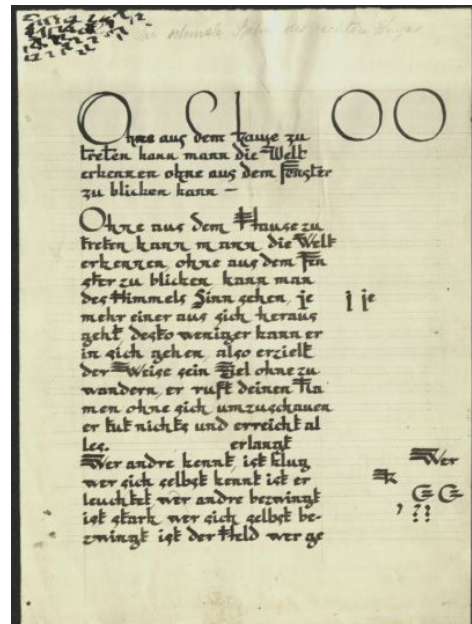 der schmale Pfad des rechten Weges
O C I O O
Ohne aus dem Hause zu
treten kann mann die Welt
erkennen ohne aus dem Fenster
zu blicken kann –
Ohne aus dem Hause zu
treten kann mann die Welt
erkennen, ohne aus dem Fen
ster zu blicken, kann man
des Himmels Sinn sehen, je
I je
mehr einer aus sich heraus
geht, desto weniger kann er
in sich gehen, also erzielt
der Weise sein Ziel ohne zu
wandern, er ruft deinen Na
men ohne sich umzuschauen
er tut nichts und erreicht al
les. erlangt
Wer andre kennt, ist klug
Wer
wer sich selbst kennt ist er
k
leuchtet wer andre bezwingt
G G
ist stark wer sich selbst be-
, ??
zwingt ist der Held wer ge